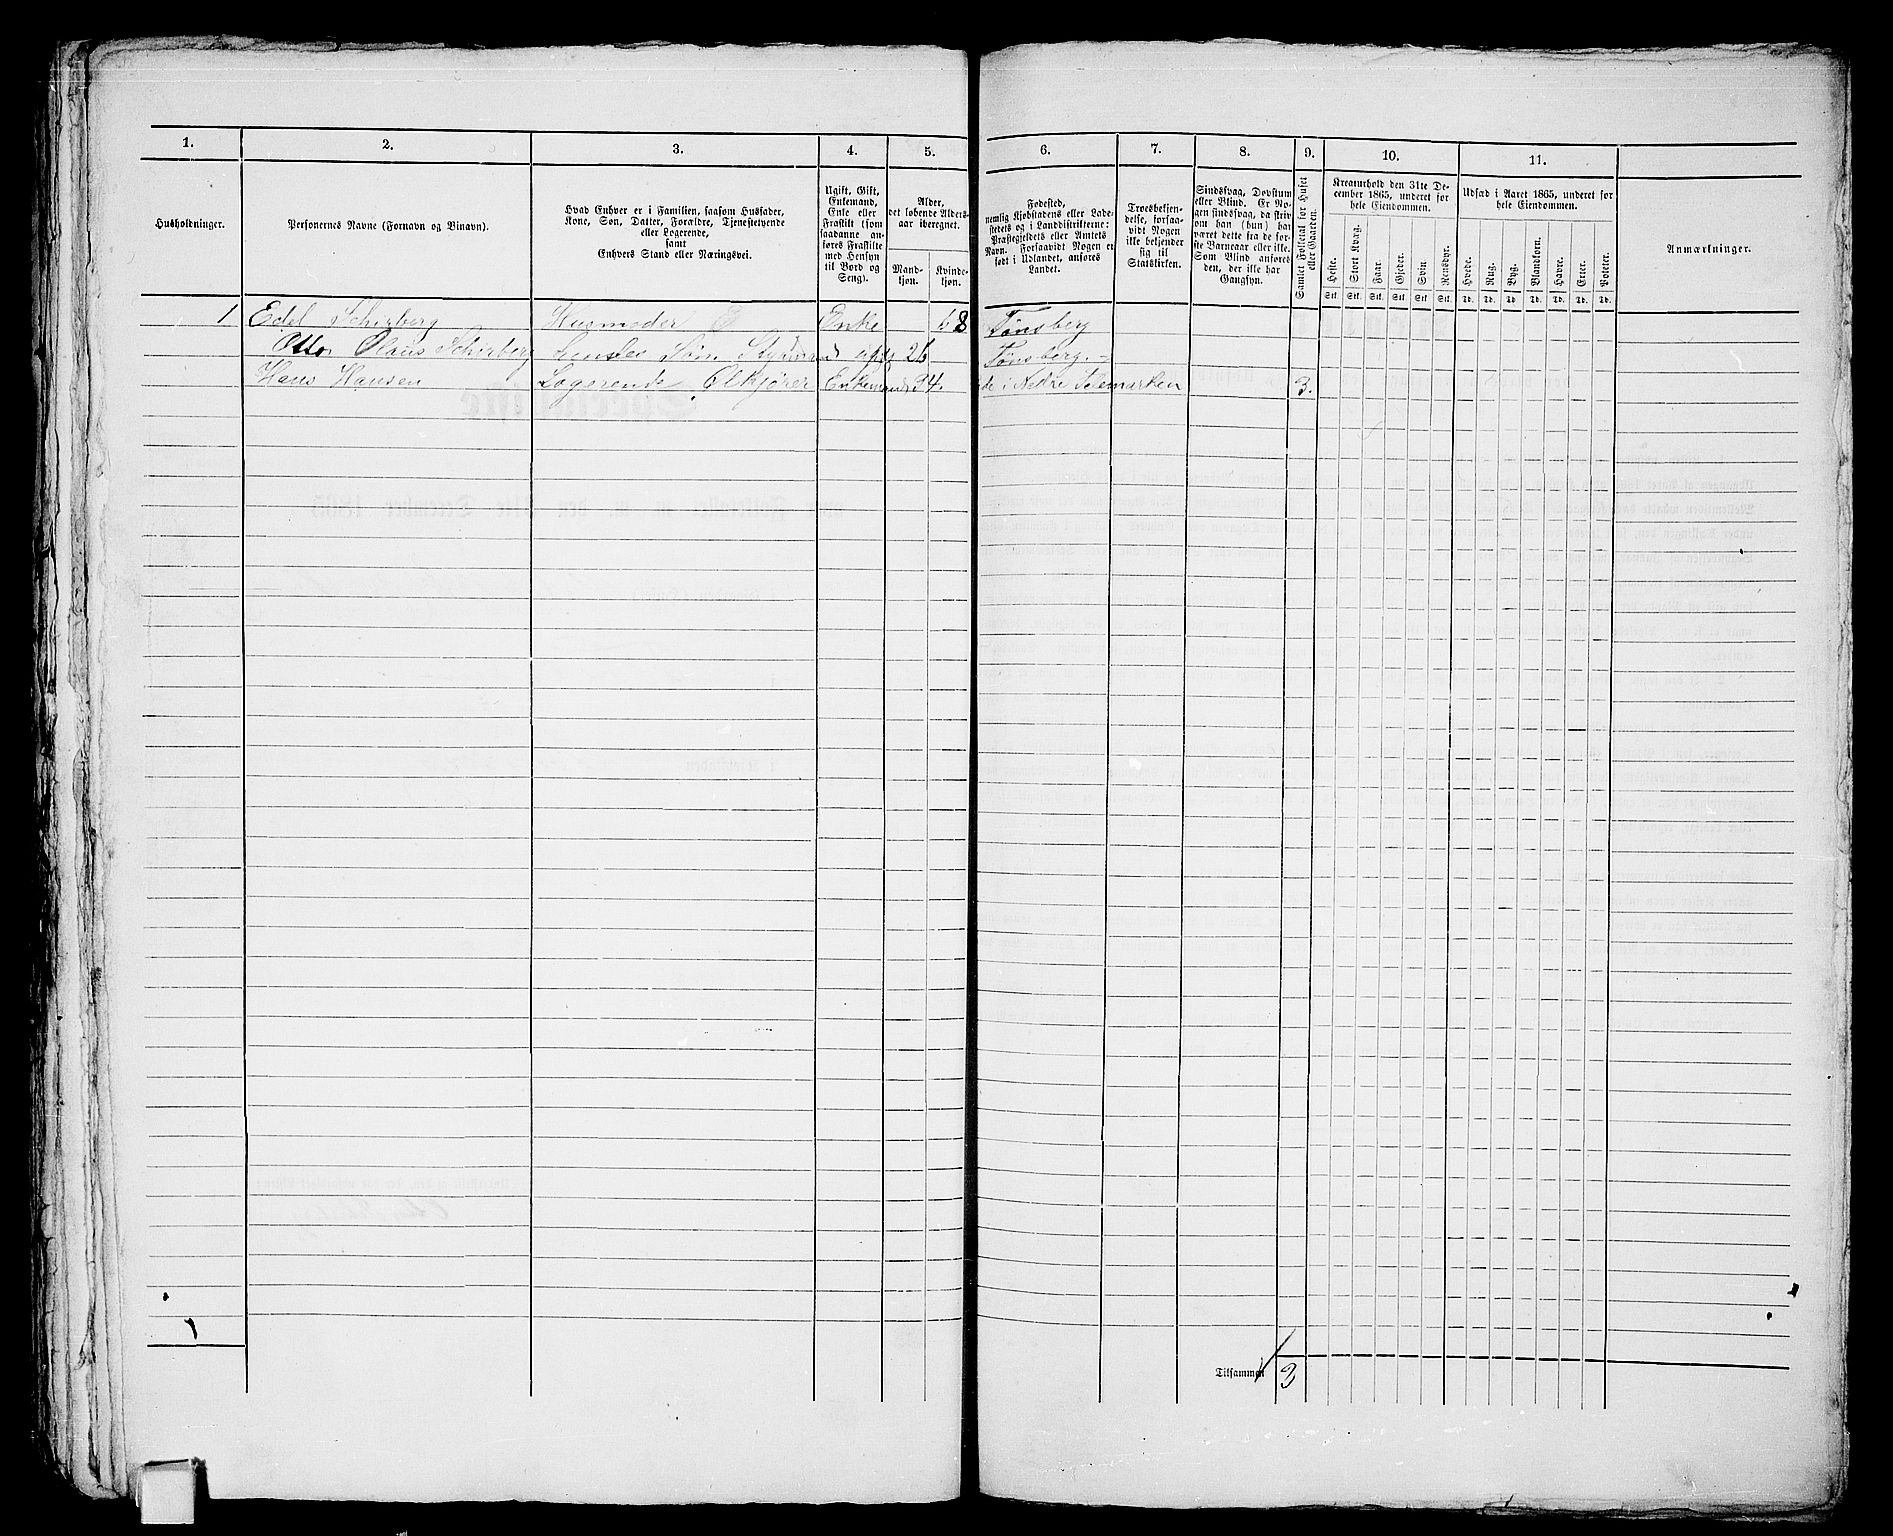 1. 2. 3. 4. 5. 6. 7. 8. 9. 10. 11.
Husholdninger.
Personernes Navne (Fornavn og Binavn).
Hvad Enhver er i Familien, saasom Husfader,
Kone, Søn, Datter, Forældre, Tjenestetyende
eller Logerende,
samt
Enhvers Stand eller Næringsvei.
Ugift, Gift,
Enkemand,
Enke eller
Fraskilt (som
saadanne an-
føres Fraskilte
med Hensyn
til Bord og
Seng).
Alder,
det løbende Alders-
aar iberegnet.
Mand-
kjøn.
Kvinde-
kjøn.
Fødested,
nemlig Kjøbstadens eller Lade-
stedets og i Landdistrikterne:
Præstegjeldets eller Amtets
Navn. Forsaavidt Nogen er
født i Udlandet, anføres
Landet.
Troesbekjen-
delse, forsaa-
vidt Nogen
ikke bekjender
sig til
Statskirken.
Sindssvag, Døvstum
eller Blind. Er No-
gen sindssvag, da skriv
om han (hun) har
været dette fra de for-
ste Barneaar eller ikke.
Som Blind anføres
den, der ikke har
Gangsyn.
Samlet Folketal for Huset
eller Gaarden.
Kreaturhold den 31te De-
cember 1865, underet for
hele Eiendommen.
Heste. Stort Kvæg. Faar. Gjeder. Svin Rensdyr.
Stk. Stk. Stk. Stk. Stk. Stk.
Udsæd i Aaret 1865, underet for
hele Eiendommen.
Hvede. Rug. Byg. Blandkorn. Havre. Erter. Poteter.
Td. Td. Td. Td. Td. Td. Td.
Anmærkninger.
1 Edel Schirberg Husmoder Enke 68 Tønsberg
Otto Olaus Schirberg Søn ugift 26 Tønsberg
Hans Hansen Logerende Enkemand 34. i Nedre Telemarken 3.
Tilsammen 3